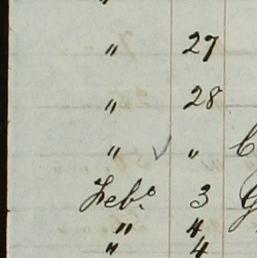 " 27
" 28
" "
Feb. 3
" 4
" 4